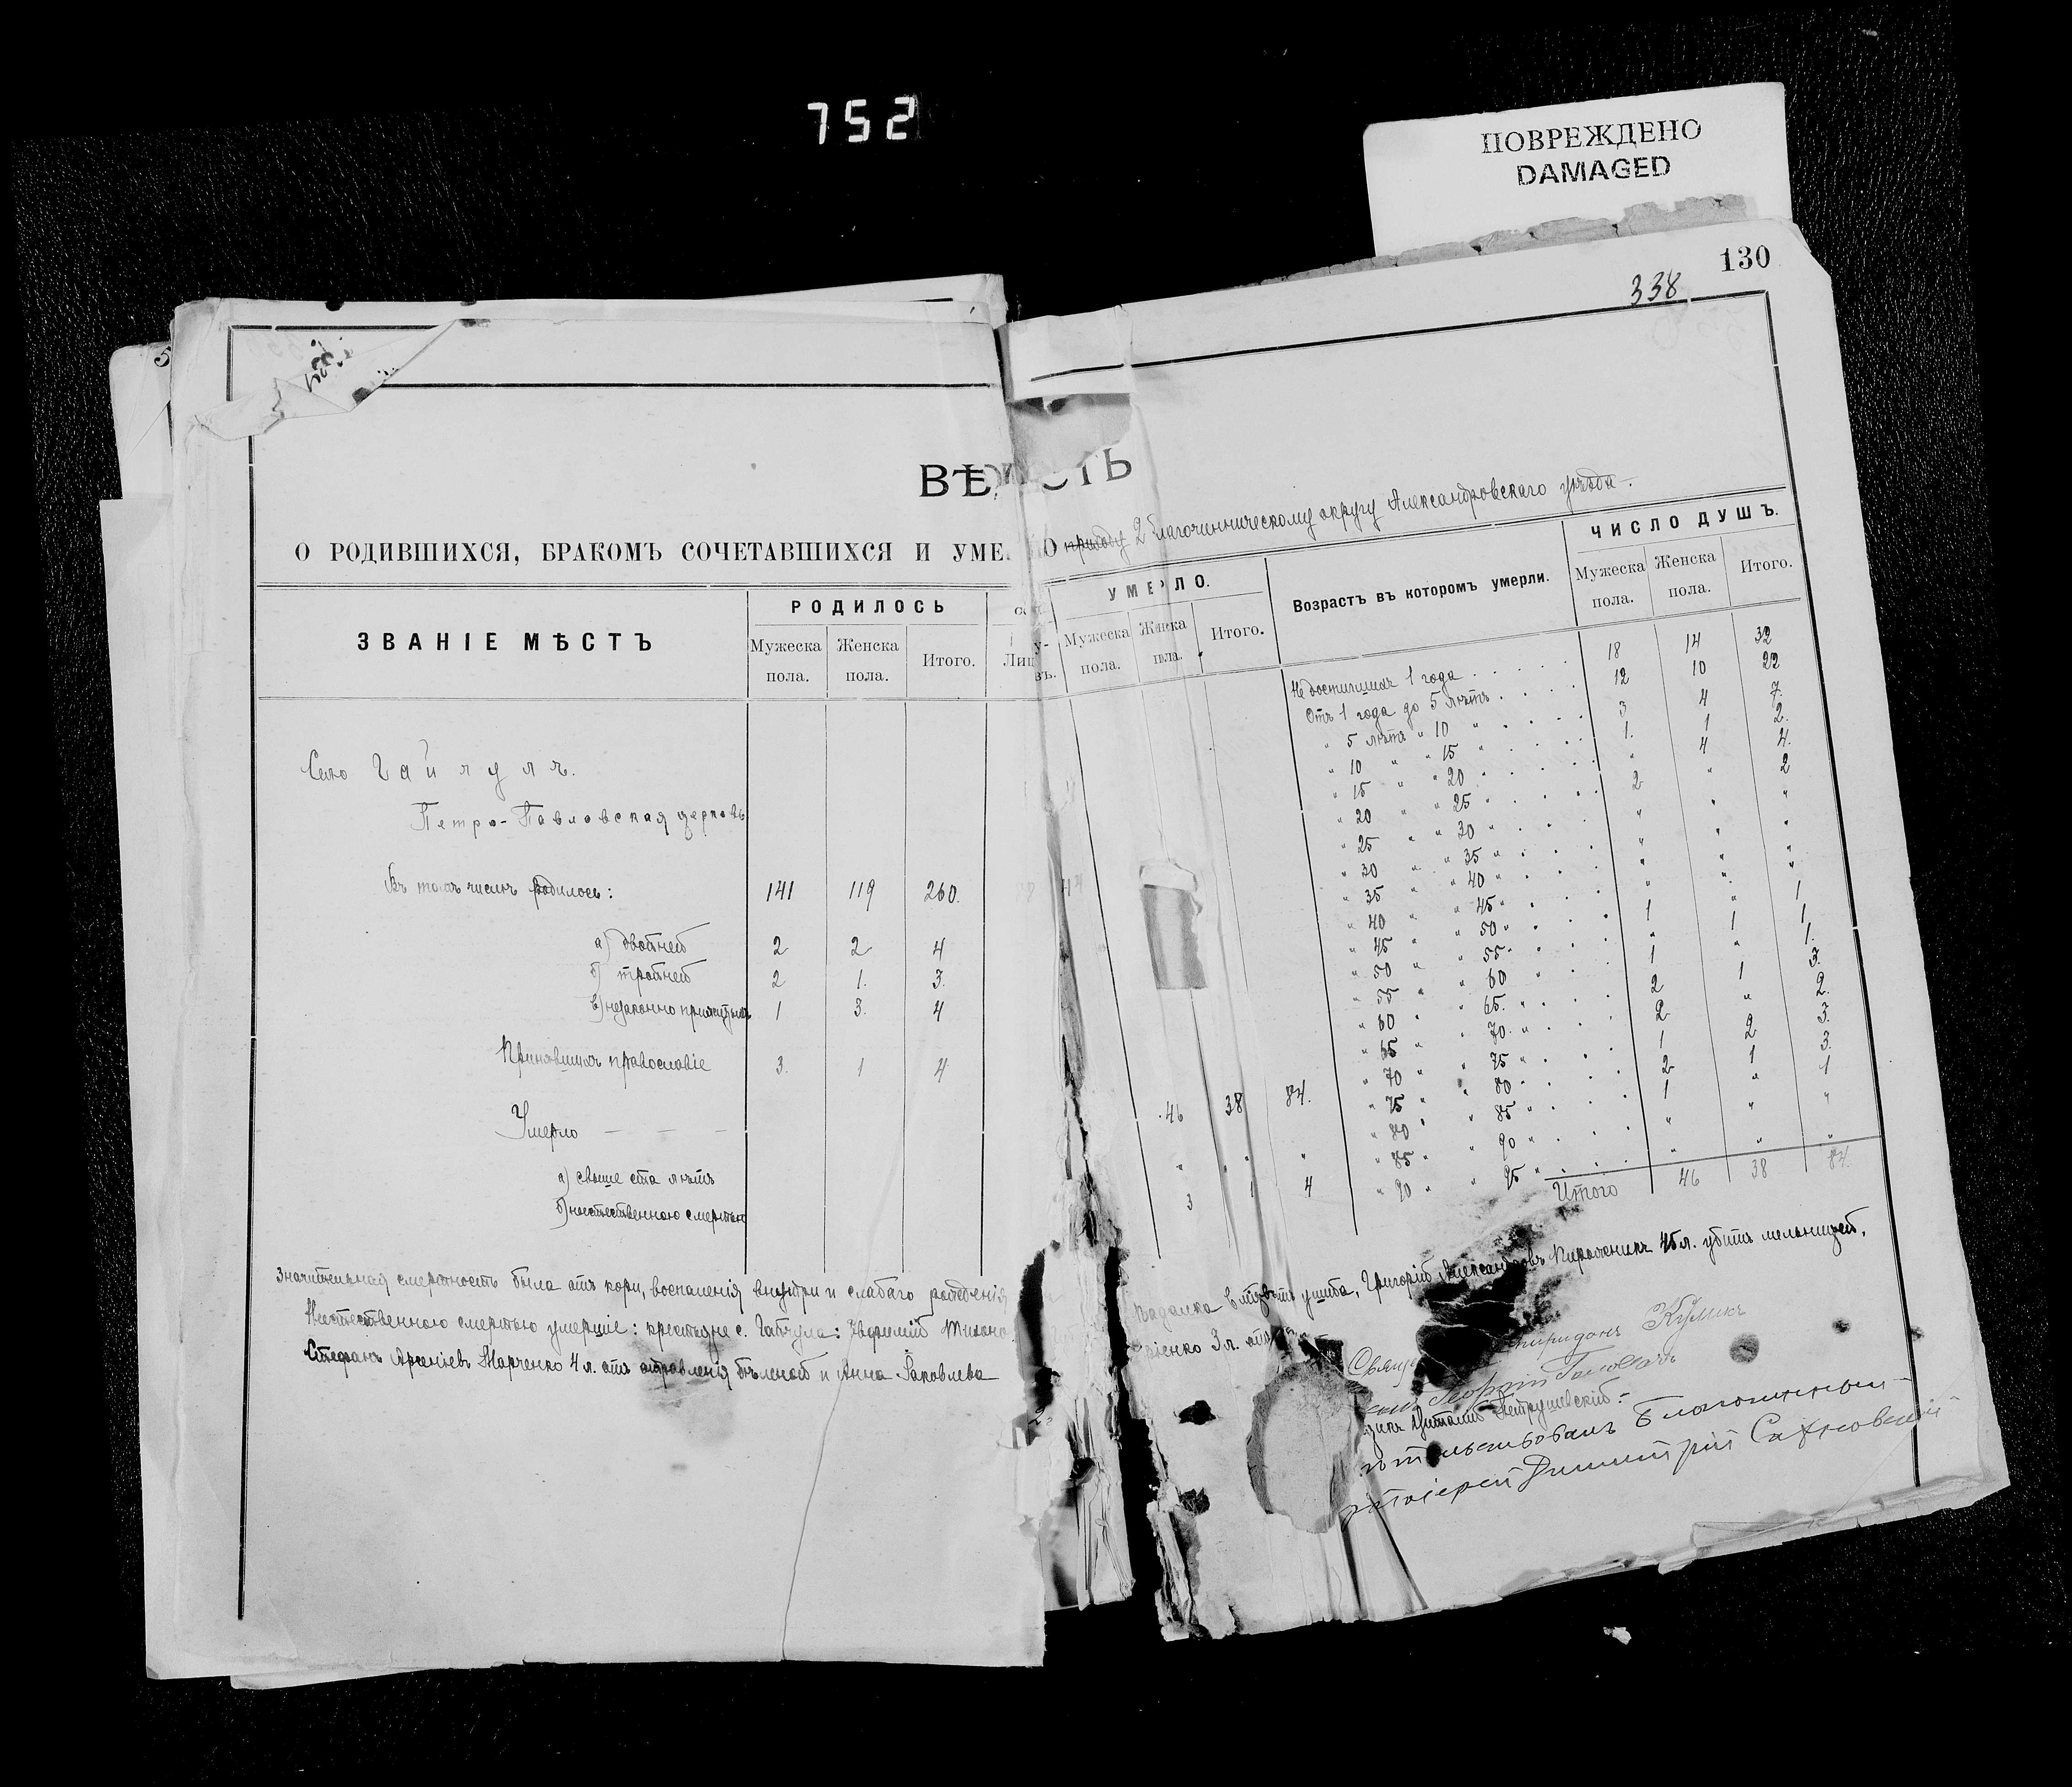 752
ПОВРЕЖДЕНО
DAMAGED
130
338
ВѢДОСТЬ
О РОДИВШИХСЯ, БРАКОМЪ СОЧЕТАВШИХСЯ И УМЕ ПО приходу 2 благочинническому округу Александровскаго уѣзда.
ЗВАНІЕ МѢСТЪ
РОДИЛОСЬ
Мужеска пола.
Женска пола.
Итого.
УМЕРЛО.
Мужеска пола.
Женска пола.
Итого.
Возрастъ въ которомъ умерли.
ЧИСЛО ДУШЪ.
Мужеска пола.
Женска пола.
Итого.
Село Гайчулъ.
Петро-Павловская церковь
Въ томъ числѣ родилось: 141 119 260.
а) двойней 2 2 4
б) тройней 2 1. 3.
в) незаконно прижитыхъ 1 3. 4
Принявшихъ православіе 3. 1 4
Умерло — — — 46 38 84.
а) свыше ста лѣтъ " " "
б) неестественною смертью 3 1 4
Недостигшихъ 1 года 18 14 32
Отъ 1 года до 5 лѣтъ 12 10 22
" 5 лѣтъ " 10 " 3 4 7.
" 10 " " 15 " 1. 1 2.
" 15 " " 20 " " 4 4.
" 20 " " 25 " 2 " 2
" 25 " " 30 " " " "
" 30 " " 35 " " " "
" 35 " " 40 " " " "
" 40 " " 45 " " " 1
" 45 " " 50 " 1 1 1.
" 50 " " 55 " " " 1.
" 55 " " 60 " 1 1 3.
" 60 " " 65. " 2 " 2.
" 65 " " 70. " 2 2 3.
" 70 " " 75 " 1 1 3.
" 75 " " 80 " 2 " 1
" 80 " " 85 " 1 " "
" 85 " " 90 " " " "
" 90 " " 95 " "
Итого 46 38 84.
Значительная смертность была отъ кори, воспаленія внутри и слабаго рожденія
Неестественною смертью умершіе: крестьяне с. Гайчула: Ефимій Тихоно
ушиба, Григорій Александровъ 45 л. убитъ мельницей,
Стефанъ Арсеніевъ Марченко 4 л. отъ отравленія бѣленой и Анна Яковлева
іенко 3 л.
Свящ Спиридонъ Куликъ
Георгій
Виталій Петрушевскій.
Благочинный
Димитрій Сахновскій